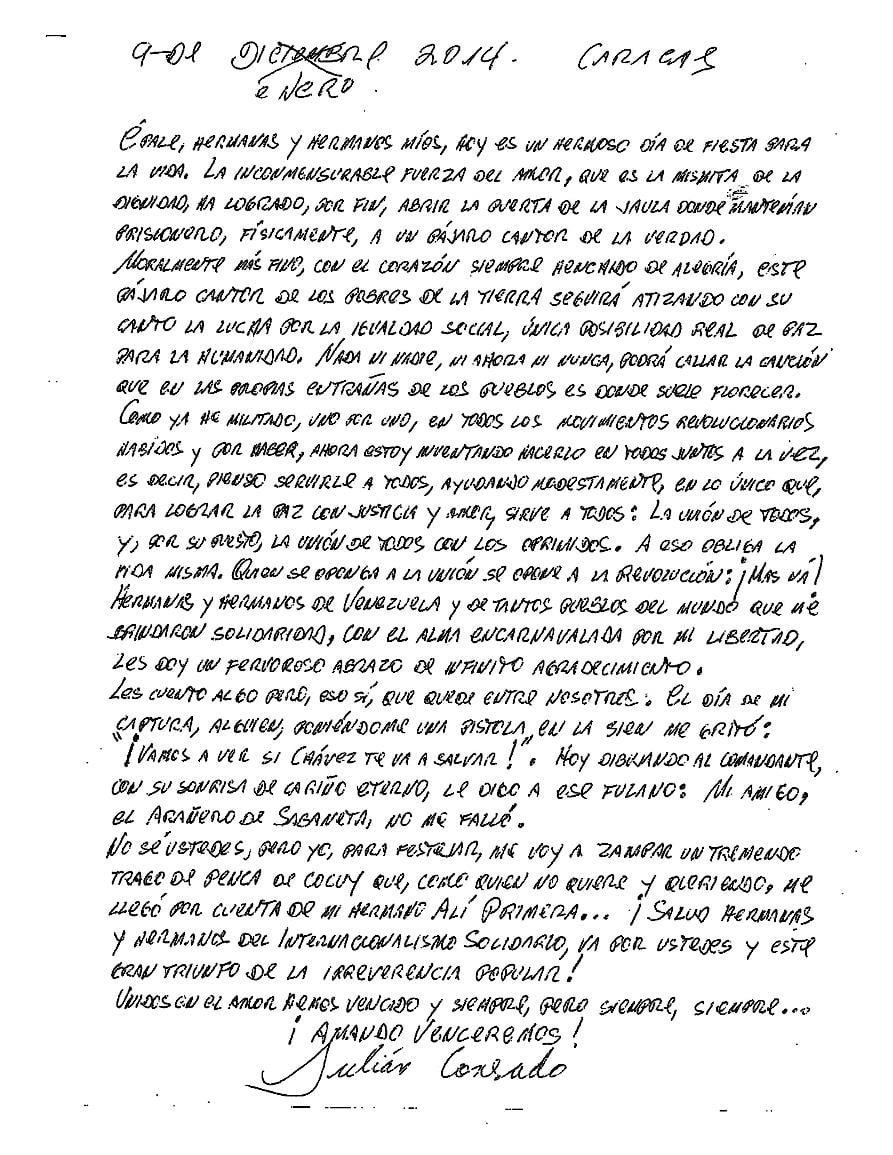 9-DE DICIEMBRE 2014. CARACAS
ENERO.
ÉPALE, HERMANAS Y HERMANOS MÍOS, HOY ES UN HERMOSO DÍA DE FIESTA PARA
LA VIDA. LA INCONMENSURABLE FUERZA DEL AMOR, QUE ES LA MISMITA DE LA
DIGNIDAD, HA LOGRADO, POR FIN, ABRIR LA PUERTA DE LA JAULA DONDE MANTENÍAN
PRISIONERO, FÍSICAMENTE, A UN PÁJARO CANTOR DE LA VERDAD.
MORALMENTE MÁS FINO, CON EL CORAZÓN SIEMPRE HENCHIDO DE ALEGRÍA, ESTE
PÁJARO CANTOR DE LOS POBRES DE LA TIERRA SEGUIRÁ ATIZANDO CON SU
CANTO LA LUCHA POR LA IGUALDAD SOCIAL, ÚNICA POSIBILIDAD REAL DE PAZ
PARA LA HUMANIDAD. NADA NI NADIE, NI AHORA NI NUNCA, PODRÁ CALLAR LA CANCIÓN
QUE EN LAS PROPIAS ENTRAÑAS DE LOS PUEBLOS ES DONDE SUELE FLORECER.
COMO YA HE MILITADO, UNO POR UNO, EN TODOS LOS MOVIMIENTOS REVOLUCIONARIOS
HABIDOS Y POR HABER, AHORA ESTOY INVENTANDO HACERLO EN TODOS JUNTOS A LA VEZ,
ES DECIR, PIENSO SERVIRLE A TODOS, AYUDANDO MODESTAMENTE, EN LO ÚNICO QUE,
PARA LOGRAR LA PAZ CON JUSTICIA Y AMOR, SIRVE A TODOS: LA UNIÓN DE TODOS,
Y, POR SUPUESTO, LA UNIÓN DE TODOS CON LOS OPRIMIDOS. A ESO OBLIGA LA
VIDA MISMA. QUIEN SE OPONGA A LA UNIÓN SE OPONE A LA REVOLUCIÓN: ¡MAS NÁ!
HERMANAS Y HERMANOS DE VENEZUELA Y DE TANTOS PUEBLOS DEL MUNDO QUE ME
BRINDARON SOLIDARIDAD, CON EL ALMA ENCARNAVALADA POR MI LIBERTAD,
LES DOY UN FERVOROSO ABRAZO DE INFINITO AGRADECIMIENTO.
LES CUENTO ALGO PERO, ESO SÍ, QUE QUEDE ENTRE NOSOTROS: EL DÍA DE MI
CAPTURA, ALGUIEN, PONIÉNDOME UNA PISTOLA EN LA SIEN ME GRITÓ:
"¡VAMOS A VER SI CHÁVEZ TE VA A SALVAR!". HOY DIBUJANDO AL COMANDANTE,
CON SU SONRISA DE CARIÑO ETERNO, LE DIGO A ESE FULANO: MI AMIGO,
EL ARAÑERO DE SABANETA, NO ME FALLÓ.
NO SÉ USTEDES, PERO YO, PARA FESTEJAR, ME VOY A ZAMPAR UN TREMENDO
TRAGO DE PENCA DE COCUY QUE, COMO QUIEN NO QUIERE Y QUERIENDO, ME
LLEGÓ POR CUENTA DE MI HERMANO ALÍ PRIMERA... ¡SALUD HERMANAS
Y HERMANOS DEL INTERNACIONALISMO SOLIDARIO, VA POR USTEDES Y ESTE
GRAN TRIUNFO DE LA IRREVERENCIA POPULAR!
UNIDOS EN EL AMOR HEMOS VENCIDO Y SIEMPRE, PERO SIEMPRE, SIEMPRE...
¡AMANDO VENCEREMOS!
Julián Conrado